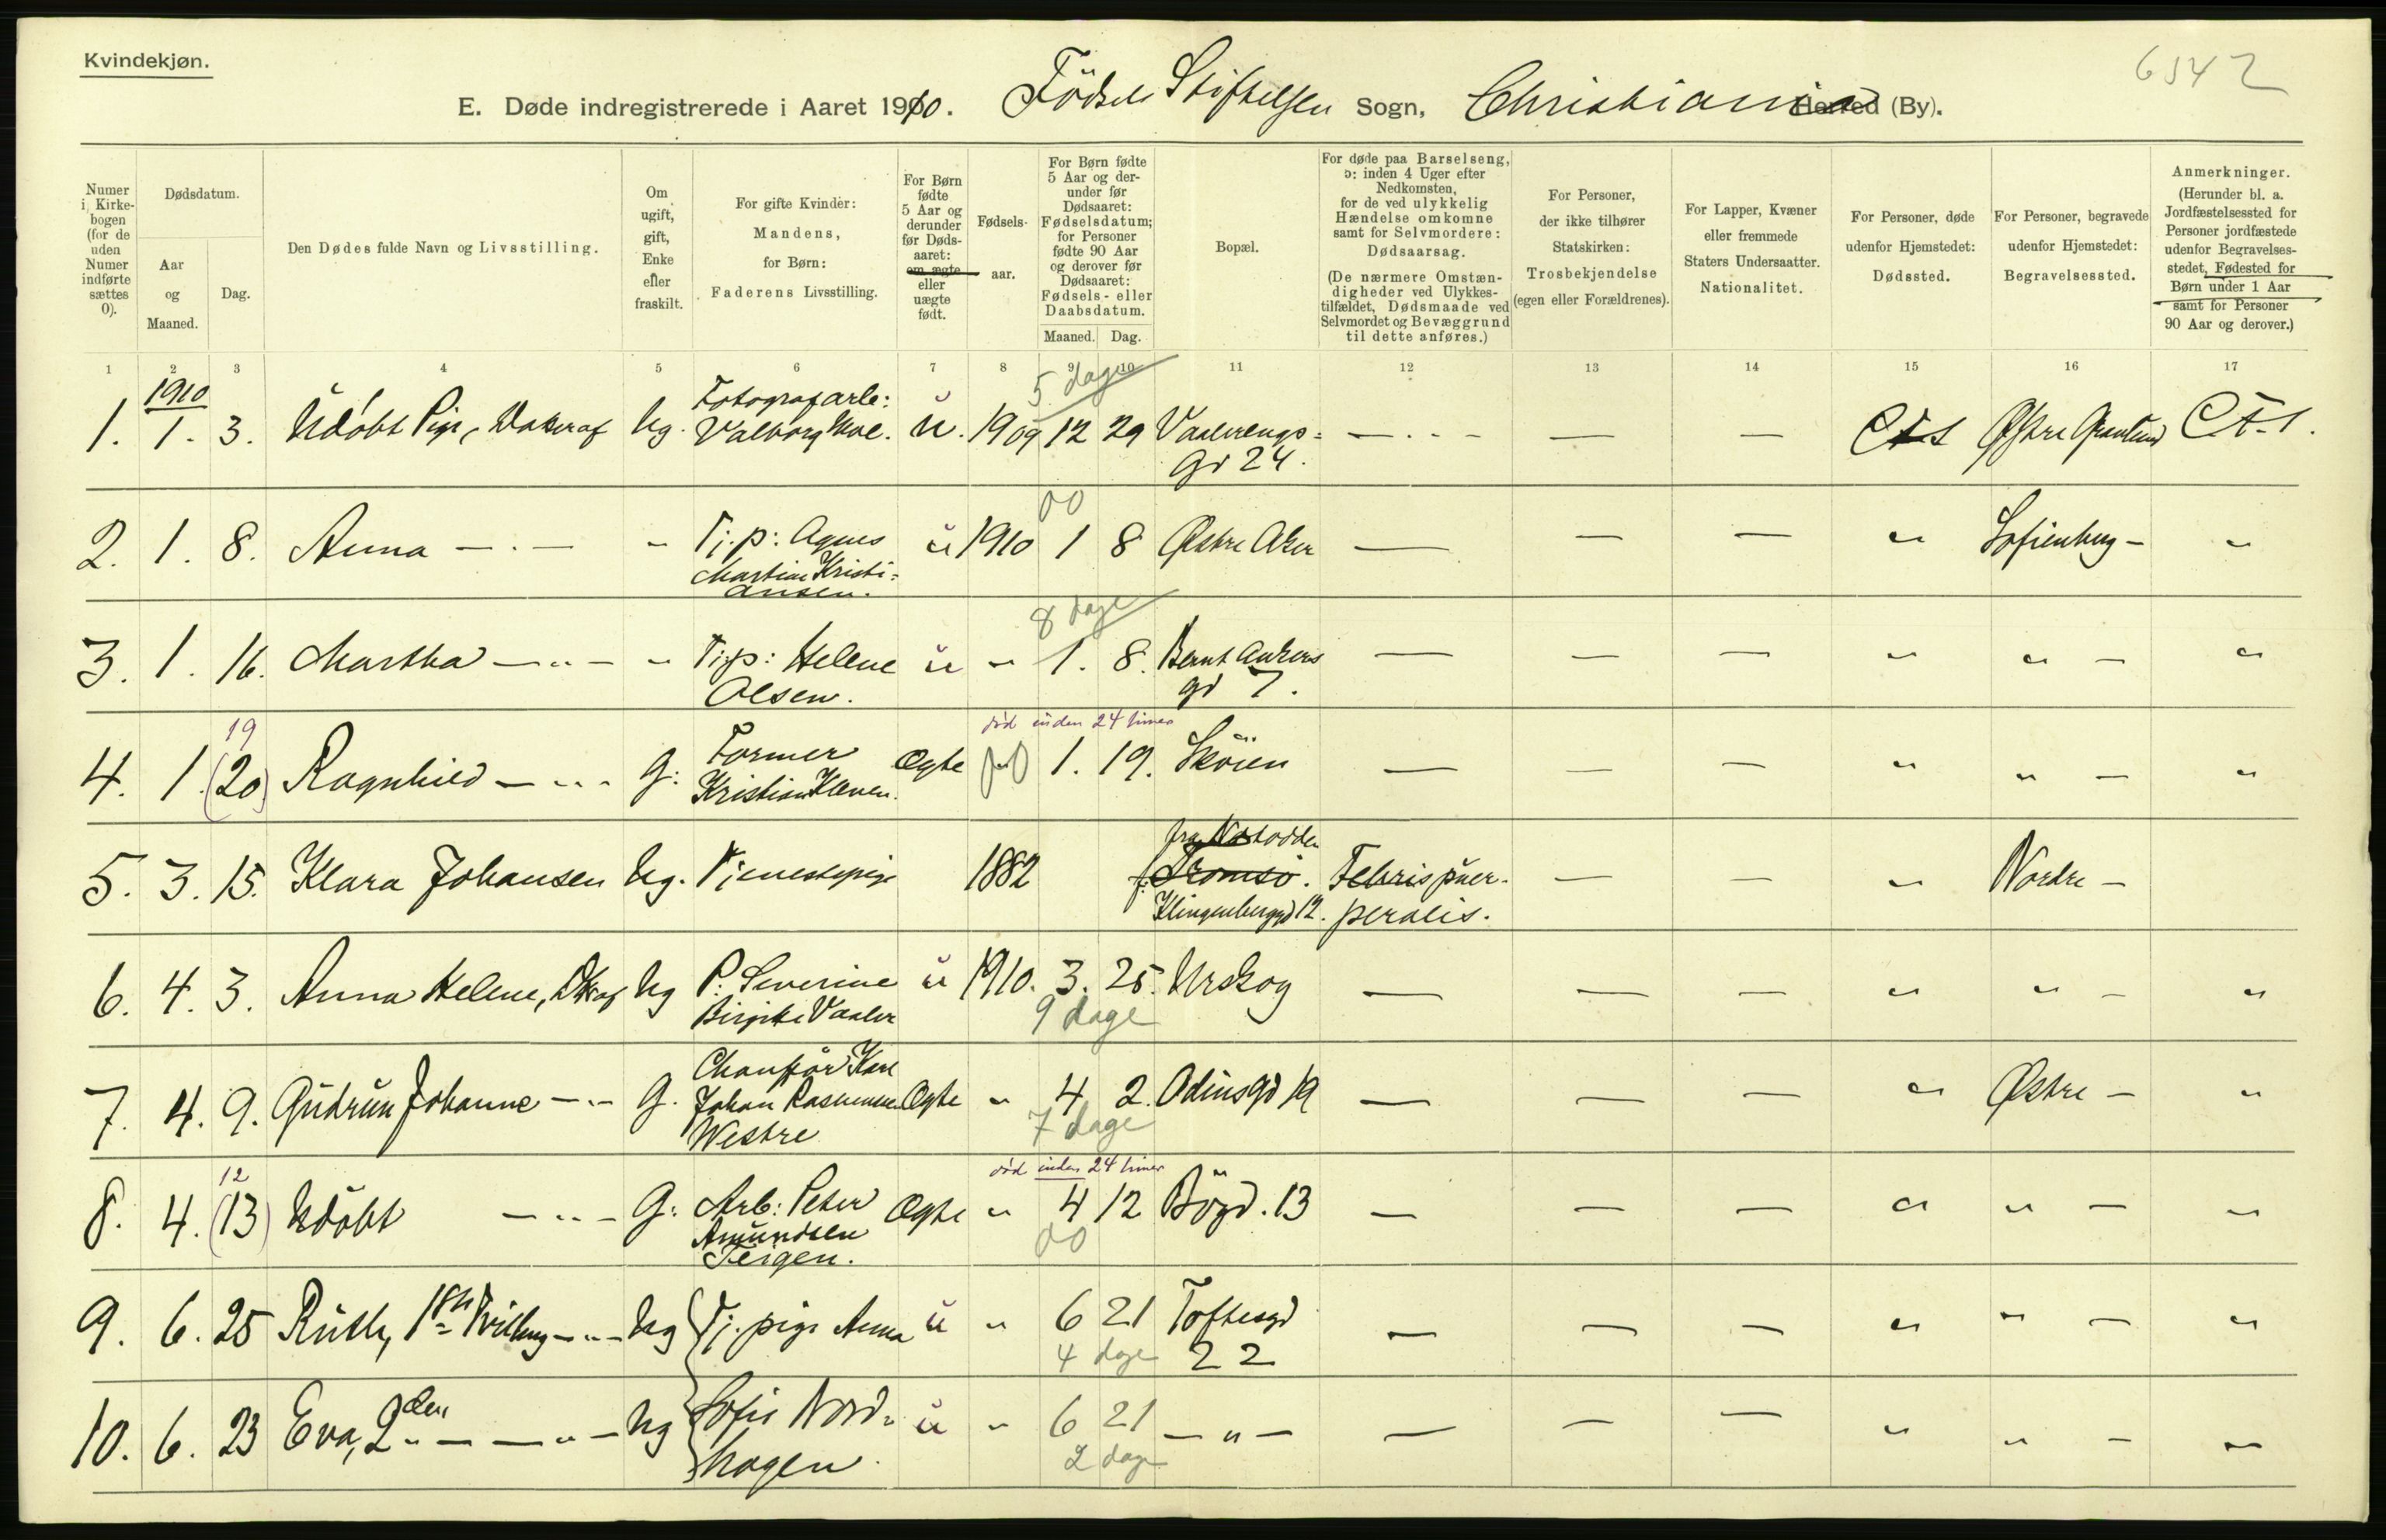 Kvindekjøn.
6542
E. Døde indregistrerede i Aaret 1910. Födsels Stiftelsen Sogn, Christiania Herred (By).
Numer i Kirkebogen (for de uden Numer indførte sættes 0).
Dødsdatum.
Aar og Maaned.
Dag.
Den Dødes fulde Navn og Livsstilling.
Om ugift, gift, Enke eller fraskilt.
For gifte Kvinder: Mandens, for Børn: Faderens Livsstilling.
For Børn fødte 5 Aar og derunder før Dødsaaret: om ægte eller uægte født.
Fødselsaar.
For Børn fødte 5 Aar og derunder før Dødsaaret: Fødselsdatum; for Personer fødte 90 Aar og derover før Dødsaaret: Fødsels- eller Daabsdatum.
Maaned. Dag.
Bopæl.
For døde paa Barselseng, ɔ: inden 4 Uger efter Nedkomsten, for de ved ulykkelig Hændelse omkomne samt for Selvmordere: Dødsaarsag.
(De nærmere Omstændigheder ved Ulykkestilfældet, Dødsmaade ved Selvmordet og Bevæggrund til dette anføres.)
For Personer, der ikke tilhører Statskirken: Trosbekjendelse (egen eller Forældrenes).
For Lapper, Kvæner eller fremmede Staters Undersaatter. Nationalitet.
For Personer, døde udenfor Hjemstedet: Dødssted.
For Personer, begravede udenfor Hjemstedet: Begravelsessted.
Anmerkninger.
(Herunder bl. a. Jordfæstelsessted for Personer jordfæstede udenfor Begravelsesstedet, Fødested for Børn under 1 Aar samt for Personer 90 Aar og derover.)
1 2 3 4 5 6 7 8 9 10 11 12 13 14 15 16 17
1910 5 dage
1. 1. 3. Udøbt Pige, Datter af Ug. Fotografarb: Valborg Moe. u. 1909 12 29 Vaalerengs= Gd 24. — . . - — — Østre Gravlund
00
2. 1. 8. Anna — . — " Tj.p: Agnes Martine Kristi= ansen. u 1910 1 8 Østre Aker — — — " Sofienberg — "
8 dage
3. 1. 16. Martha — " — " Tj.p: Helene Olsen. u " 1. 8. Bernt Ankers gd 7. — — — " " — "
død inden 24 timer
4. 1. 19 (20) Ragnhild — " - G: Former Kristian Kleven. Ægte 1. 19. Skøien — — — " " — "
5. 3. 15. Klara Johansen Ug. Tjenestepige 1882 fra Notodden f: Tromsø. Klingenberggd 12. Febris puerperalis. — — " Nordre —
6. 4. 3. Anna Helene, Dtr af Ug P. Severine Birgitte Vaaler u 1910. 3. 25. Urskog — — — " " — "
9 dage
7. 4. 9. Gudrun Johanne — " — G. Chauffør Karl Johan Rasmussen Westre Ægte " 4 2. Odinsgd 19 — — — " Østre — "
7 dage
død inden 24 timer
8. 4. 12 (13) Udøbt — " — G: Arb: Peter Amundsen Teigen. Ægte " 4 12 Bögd. 13 — — — " " — "
00
9. 6. 25 Ruth, 1ste Tvilling — " — Ug Tj. pige Anna u " 6 21 Toftesgd 22 — — — " " — "
4 dage
10. 6. 23 Eva, 2den " — — " — Ug Sofie Nord= hagen. u " 6 21 — " — — — — " " — "
2 dage